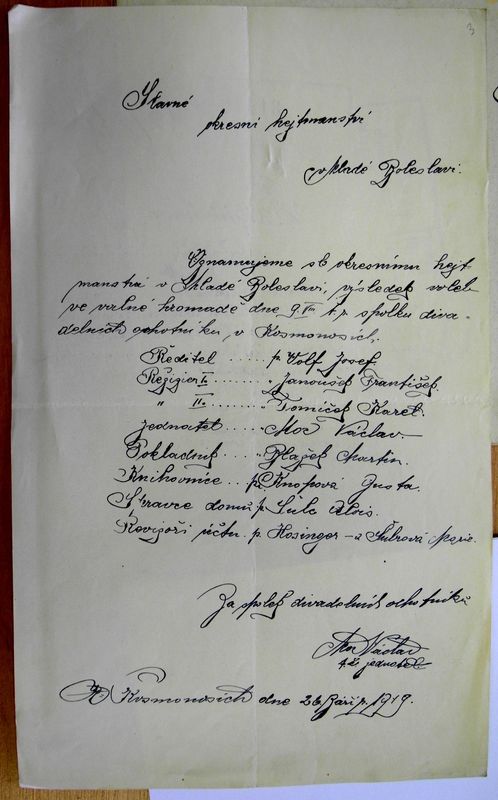 3
Slavné
okresní hejtmanství
v Mladé Boleslavi.
Oznamujeme sl. okresnímu hejt
manství v Mladé Boleslavi, výsledek voleb
ve valné hromadě dne 9. VIII t.r. spolku diva-
delních ochotníku v Kosmonosích,
Ředitel ..... p. Wolf Josef.
Režigier I. ...... „ Janoušek František
„ II. ...... „ Tomíček Karel.
Jednatel ..... „ Moc Václav.
Pokladník .... „ Blažek Martin.
Knihovnice .. pí Knopová Gusta.
Správce domu p. Šulc Alois.
Revisoři účtu p. Hosinger a Šubrová Marie.
Za spolek divadelních ochotníků
Moc Václav
t.č. jednatel
V Kosmonosích dne 26 září r. 1919.